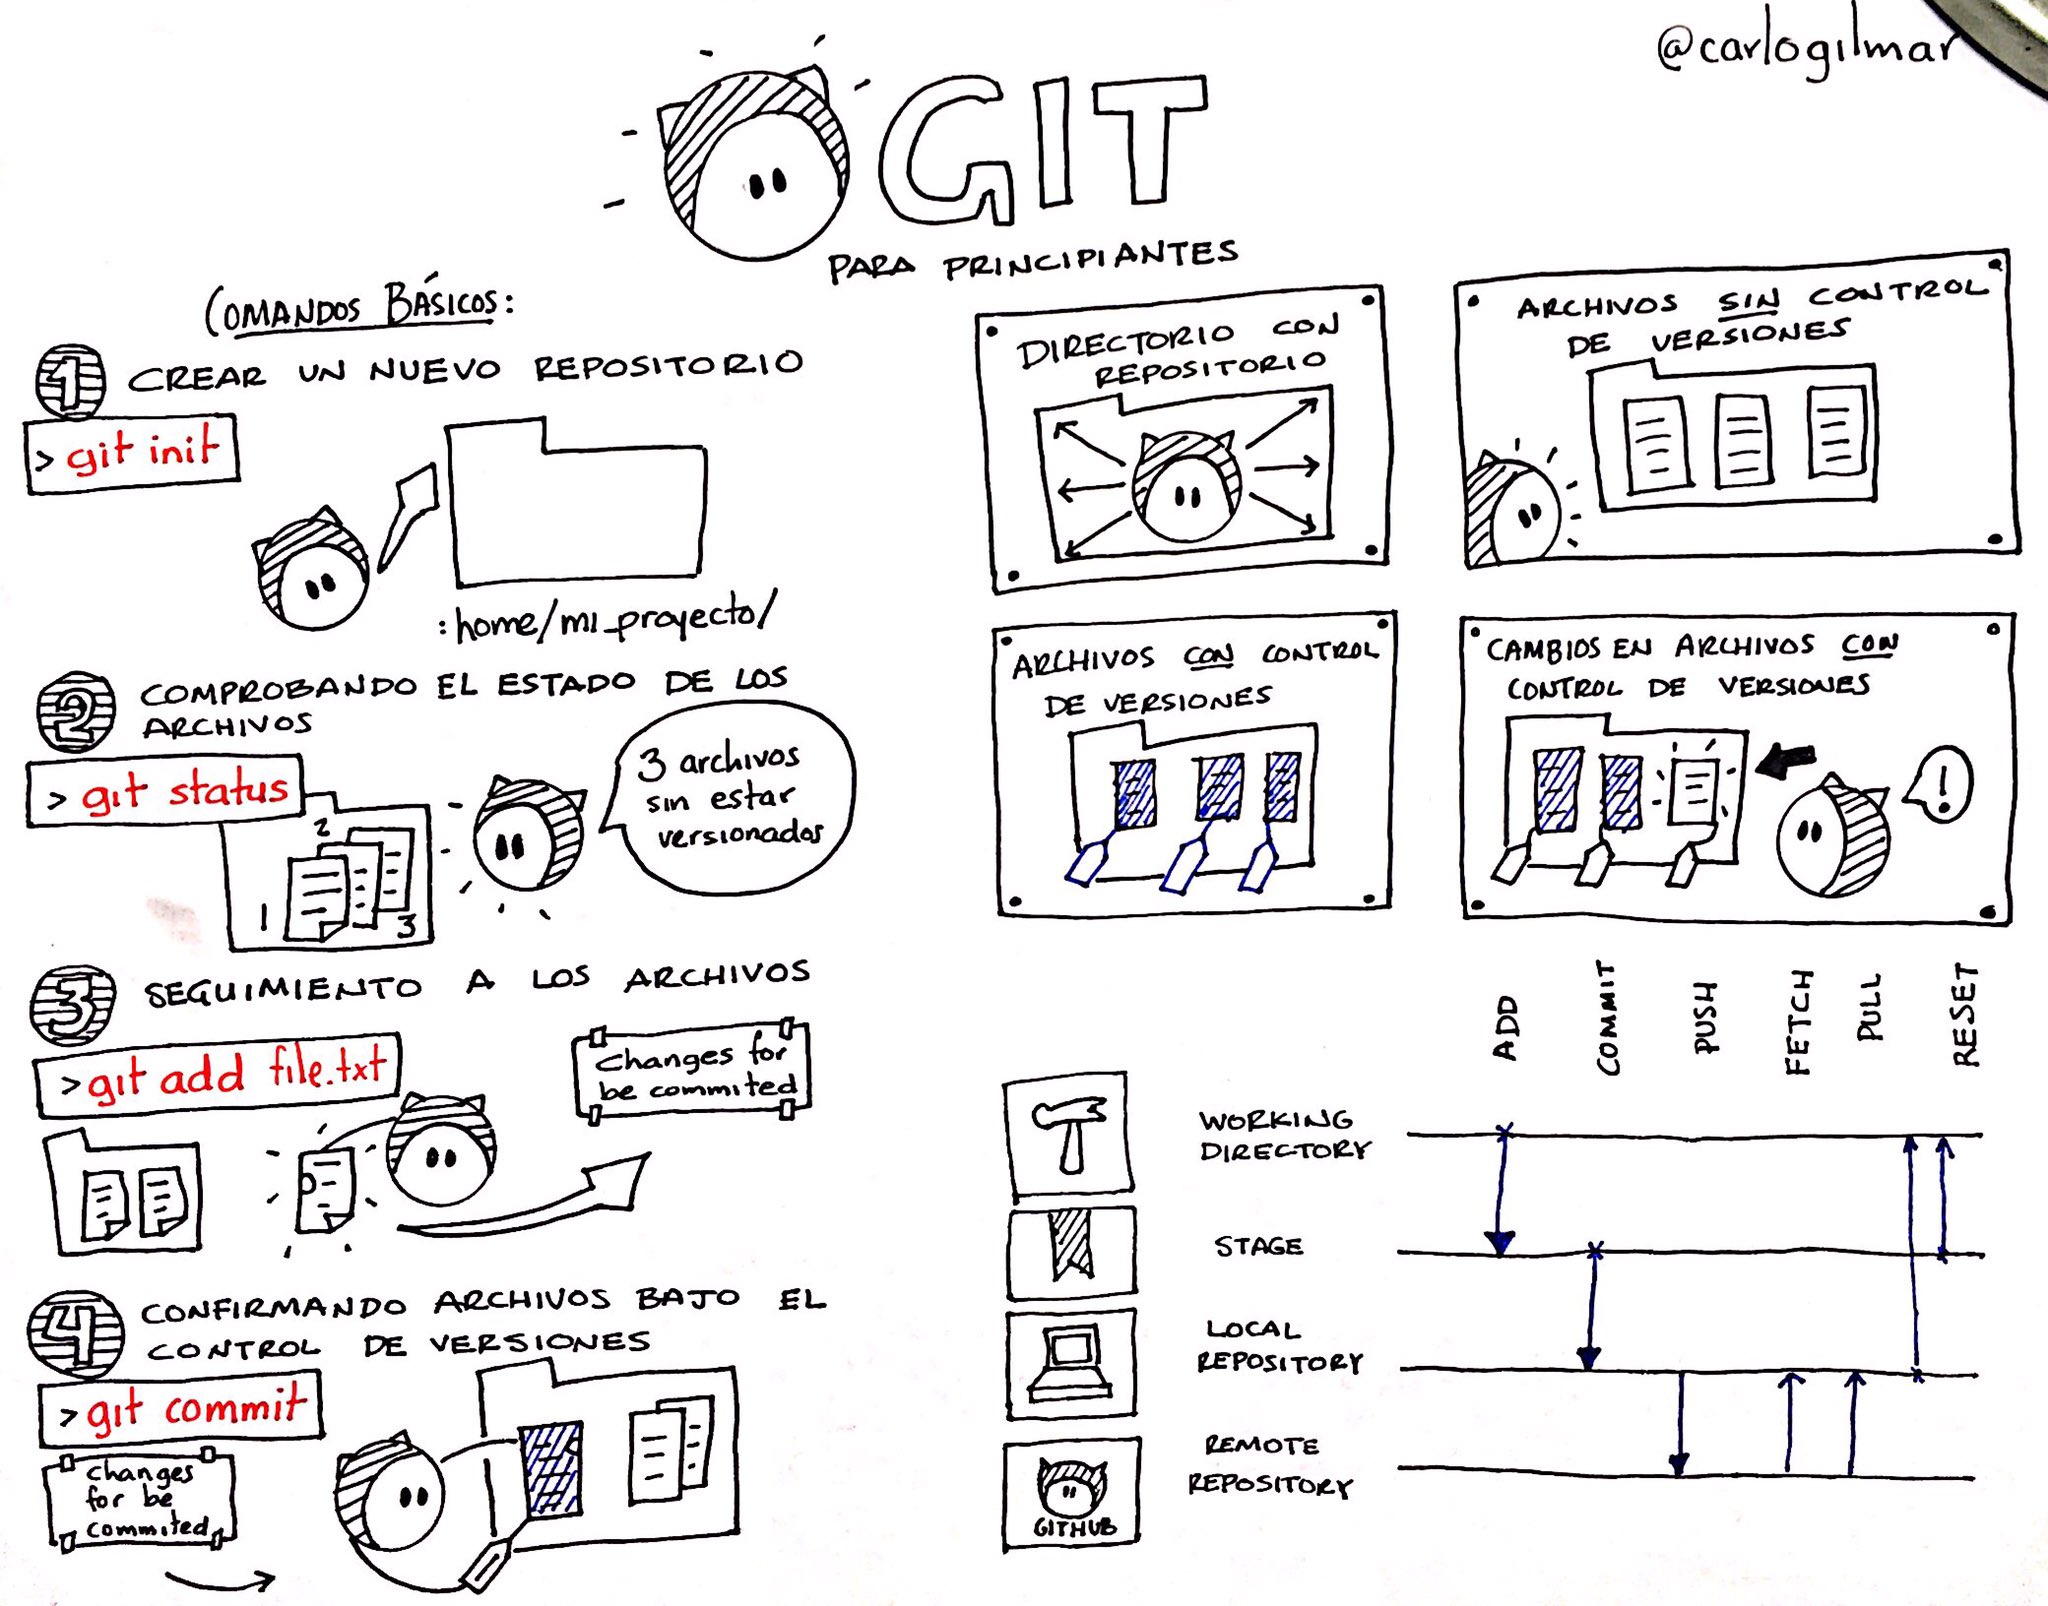 @carlogilmar
GIT
PARA PRINCIPIANTES
COMANDOS BÁSICOS:
1 CREAR UN NUEVO REPOSITORIO
> git init
:home/mi_proyecto/
2 COMPROBANDO EL ESTADO DE LOS
ARCHIVOS
> git status
3 archivos
sin estar
versionados
2
1
3
3 SEGUIMIENTO A LOS ARCHIVOS
> git add file.txt
Changes for
be commited
4 CONFIRMANDO ARCHIVOS BAJO EL
CONTROL DE VERSIONES
> git commit
Changes
for be
commited
DIRECTORIO CON
REPOSITORIO
ARCHIVOS SIN CONTROL
DE VERSIONES
ARCHIVOS CON CONTROL
DE VERSIONES
CAMBIOS EN ARCHIVOS CON
CONTROL DE VERSIONES
!
ADD
COMMIT
PUSH
FETCH
PULL
RESET
WORKING
DIRECTORY
STAGE
LOCAL
REPOSITORY
REMOTE
REPOSITORY
GITHUB